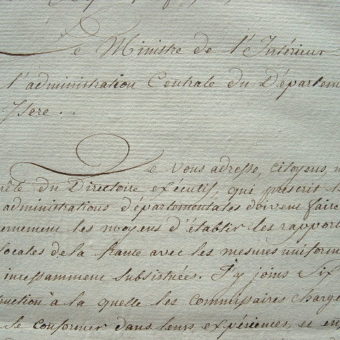 Le Ministre de l'Intérieur
l'administration Centrale du Départem
Isere..
Je vous adresse, Citoyens,
du Directoire exécutif, qui prescrit
administrations départementales doivent faire
ernement les moyens d'établir les rapport
locales de la france avec les mesures uniform
incessamment substituées. J'y joins six
ruction a la quelle les Commissaires Charg
se conformer dans leurs expériences, se en